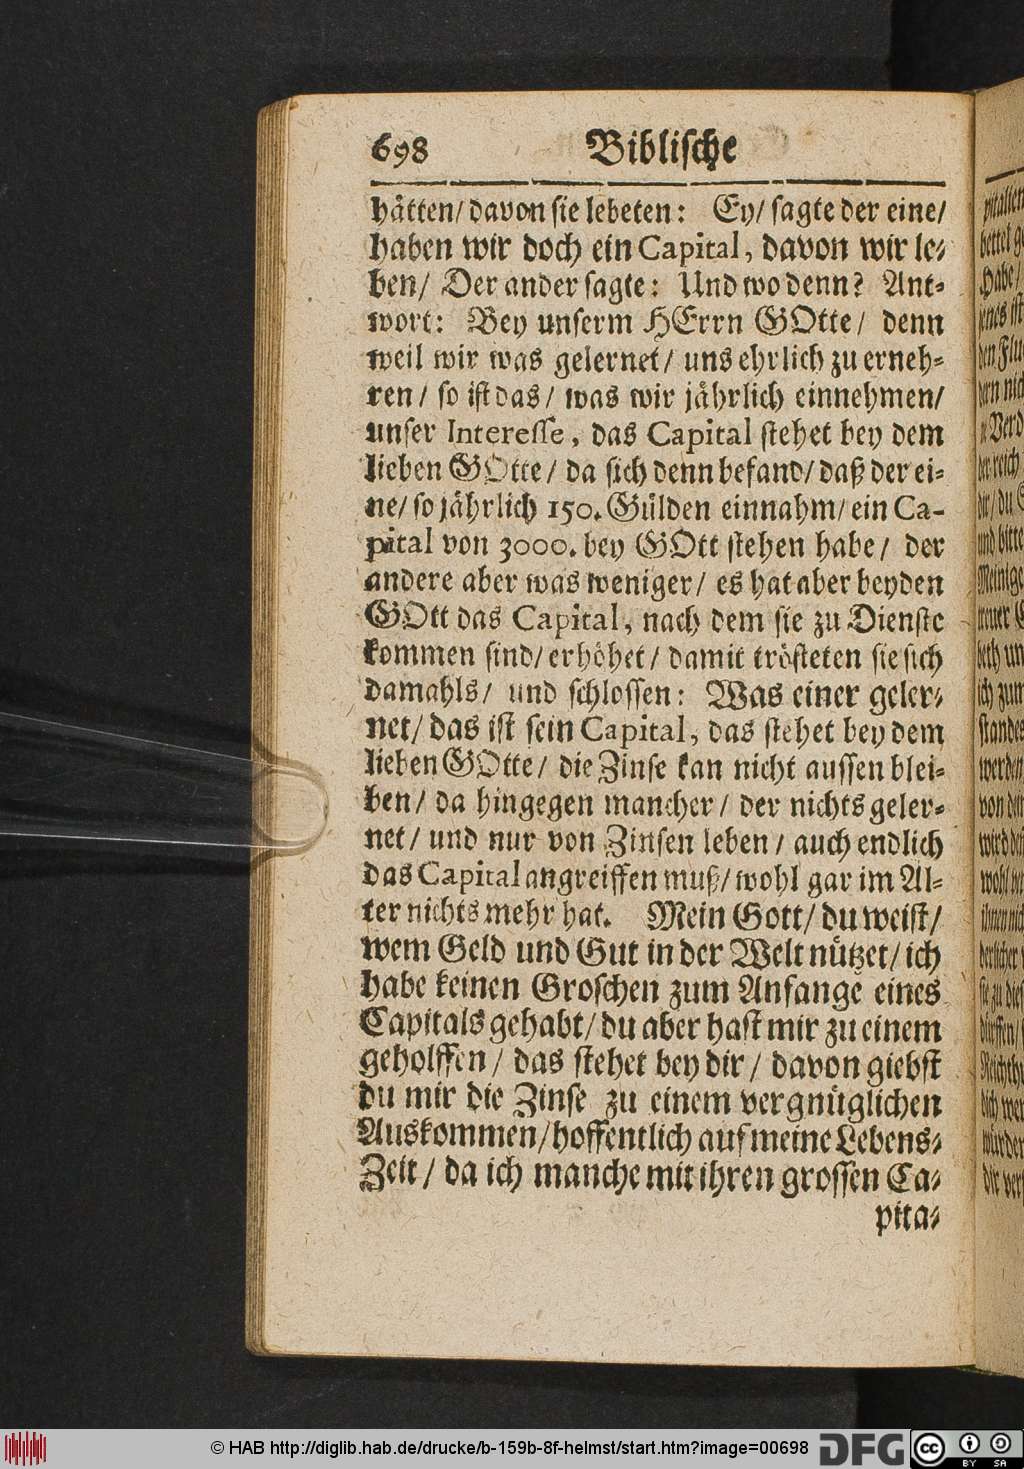 698 Biblische
hätten/ davon sie lebeten: Ey/ sagte der eine/
haben wir doch ein Capital, davon wir le-
ben/ Der ander sagte: Und wo denn? Ant-
wort: Bey unserm HErrn GOtte/ denn
weil wir was gelernet/ uns ehrlich zu erneh-
ren/ so ist das/ was wir jährlich einnehmen/
unser Interesse, das Capital stehet bey dem
lieben GOtte/ da sich denn befand/ daß der ei-
ne/ so jährlich 150. Gülden einnahm/ ein Ca-
pital von 3000. bey GOtt stehen habe/ der
andere aber was weniger/ es hat aber beyden
GOtt das Capital, nach dem sie zu Dienste
kommen sind/ erhöhet/ damit trösteten sie sich
damahls/ und schlossen: Was einer geler-
net/ das ist sein Capital, das stehet bey dem
lieben GOtte/ die Zinse kan nicht aussen blei-
ben/ da hingegen mancher/ der nichts geler-
net/ und nur von Zinsen leben/ auch endlich
das Capital angreiffen muß/ wohl gar im Al-
ter nichts mehr hat. Mein Gott/ du weist/
wem Geld und Gut in der Welt nützet/ ich
habe keinen Groschen zum Anfange eines
Capitals gehabt/ du aber hast mir zu einem
geholffen/ das stehet bey dir/ davon giebst
du mir die Zinse zu einem vergnüglichen
Auskommen/ hoffentlich auf meine Lebens-
Zeit/ da ich manche mit ihren grossen Ca-
pita-
© HAB http://diglib.hab.de/drucke/b-159b-8f-helmst/start.htm?image=00698 DFG cc BY SA